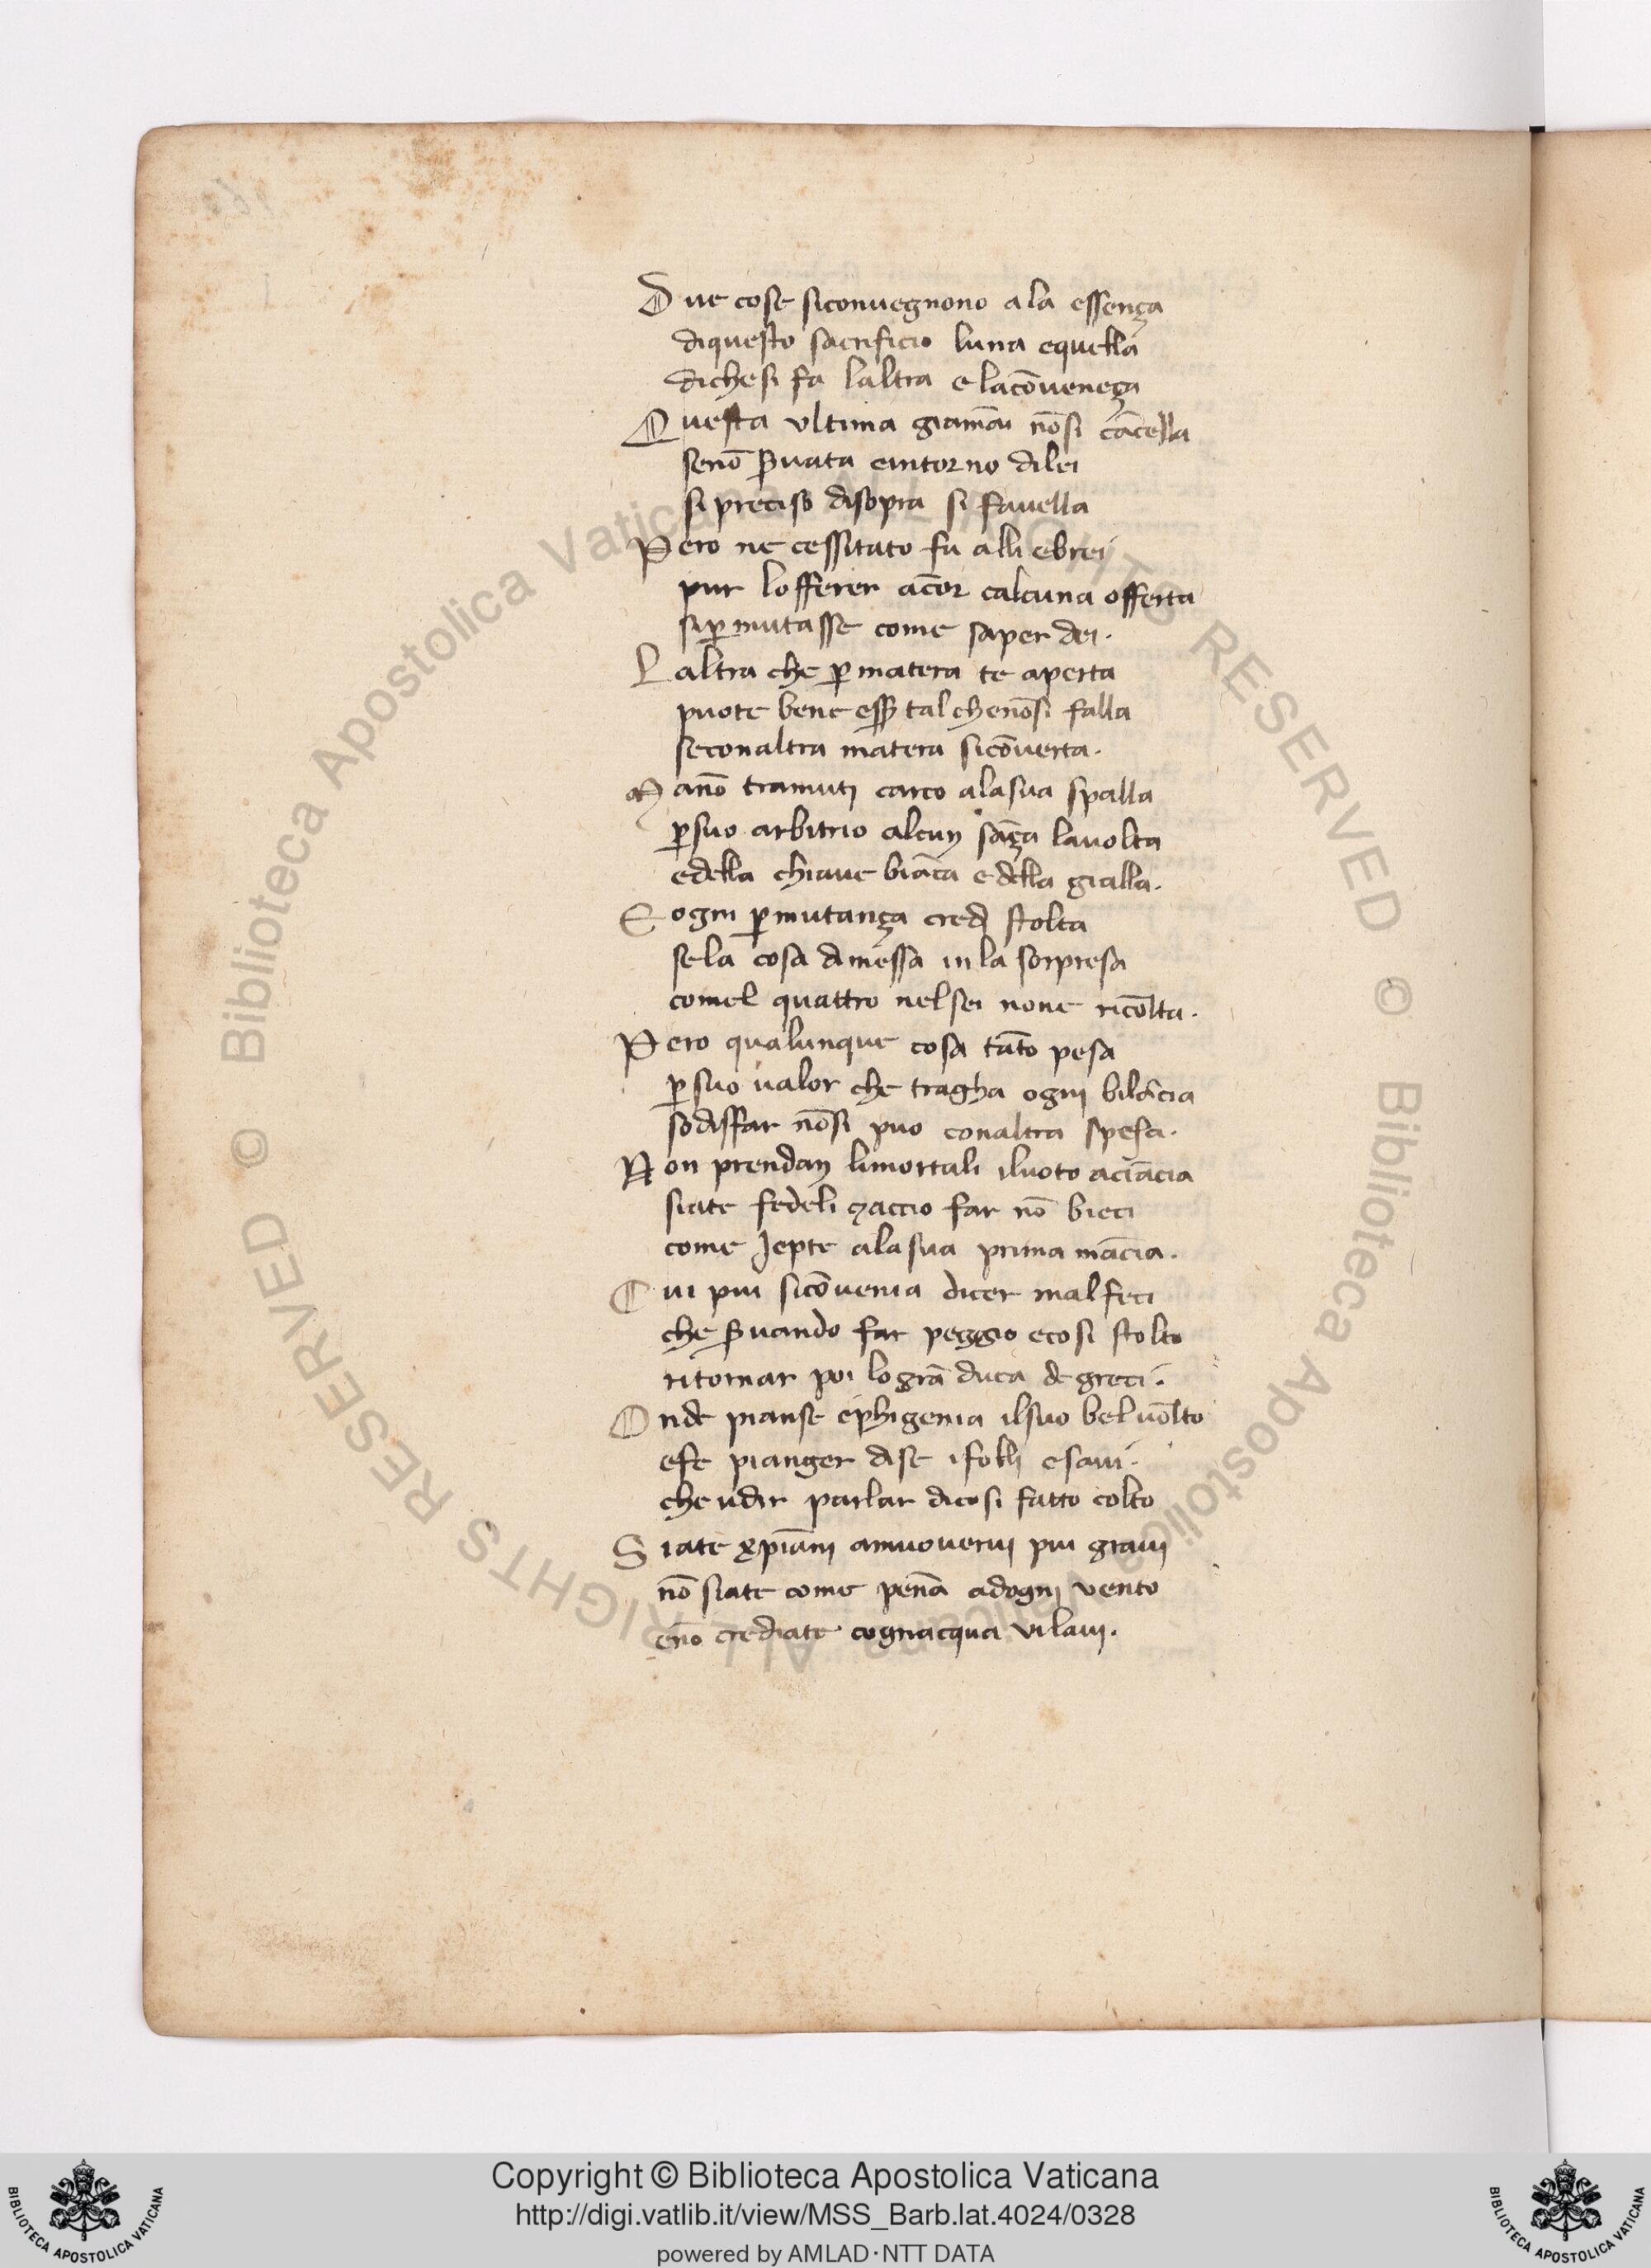 Due cose siconuegnono ala essença
diquesto sacrificio luna equella
dichesi fa laltra e lacōueneça
Questa vltima giamāi nōsi cācella
senō ꝑuata eintorno dilei
si preciso disopra si fauella
Pero ne cessitato fu alli ebrei
pur lofferer acōr calcuna offerta
siꝑmutasse come saper dei.
Laltra che ꝑ matera te aperta
puote bene esser tal chenōsi falla
seconaltra matera sicōuerta.
Manō tramuti carco alasua spalla
ꝑsuo arbitrio alcun sāça lauolta
edella chiaue biāca edella gialla.
Eogni ꝑmutança credi stolta
sela cosa dimessa in la sorpresa
comel quattro nelsei none ricolta.
Pero qualunque cosa tāto pesa
ꝑ suo ualor che tragha ogni bilācia
sodisfar nōsi puo conaltra spesa.
Non prendan limortali iluoto aciācia
siate fedeli çaccio far nō bieci
come Jepte alasua prima mācia.
Cui piu sicōuenia dicer malfeci
che ꝑuando far peggio ecosi stolto
ritornar poi lo grā duca de greci.
Onde pianse ephigenia ilsuo bel uolto
efe pianger dise ifolli esaui.
che udir parlar dicosi fatto colto
Siate xp̄iani amuouerui piu graui
nō siate come pēna adogni vento
enō crediate cognacqua vilaui.
© Biblioteca Apostolica Vaticana ALL RIGHTS RESERVED © Biblioteca Apostolica Vaticana ALL RIGHTS RESERVED
Copyright © Biblioteca Apostolica Vaticana
http://digi.vatlib.it/view/MSS_Barb.lat.4024/0328
powered by AMLAD·NTT DATA
BIBLIOTECA APOSTOLICA VATICANA
BIBLIOTECA APOSTOLICA VATICANA